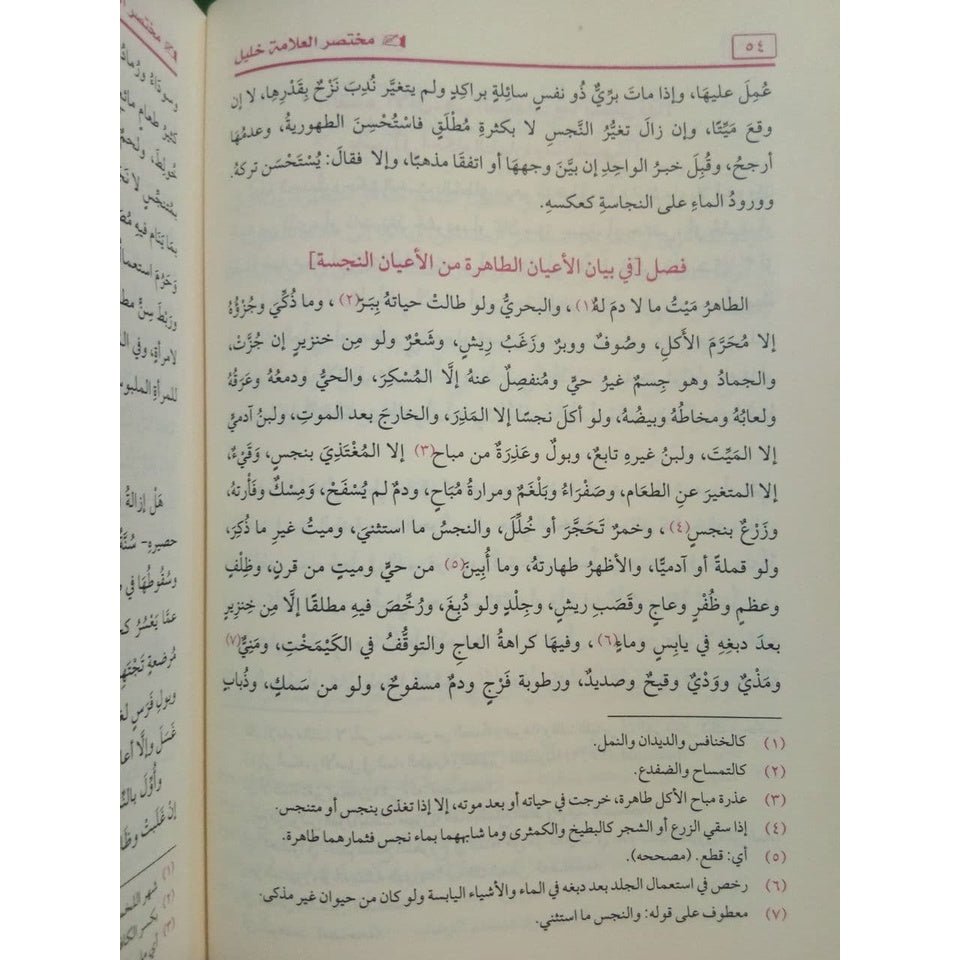 ٥٤
مختصر العلامة خليل
عُمِلَ عليهَا، وإذا ماتَ برِّيٌّ ذُو نفسٍ سائِلةٍ براكِدٍ ولم يتغيَّر نُدِبَ نَزْحٌ بِقَدْرِهَا، لا إن
وقعَ مَيِّتًا، وإن زالَ تغيُّرُ النَّجسِ لا بكثرةِ مُطْلَقٍ فاسْتُحْسِنَ الطهوريةُ، وعدمُهَا
أرجحُ، وقُبِلَ خبرُ الواحِدِ إن بيَّنَ وجههَا أو اتفقَا مذهبًا، وإلا فقالَ: يُسْتَحْسَن تركهُ.
وورودُ الماءِ على النجاسةِ كعكسهِ.
فصل [في بيان الأعيان الطاهرة من الأعيان النجسة]
الطاهرُ مَيْتُ ما لا دمَ لهُ(١)، والبحريُّ ولو طالتْ حياتهُ بِبَرّ(٢)، وما ذُكِّيَ وجُزْؤُهُ
إلا مُحَرَّمَ الأَكلِ، وصُوفٌ ووبرٌ وزَغَبُ رِيشٍ، وشَعْرٌ ولو مِن خنزيرٍ إن جُزَّتْ،
والجمادُ وهو جِسمٌ غيرُ حيٍّ ومُنفصِلٌ عنهُ إلَّا المُسْكِرَ، والحيُّ ودمعُهُ وعَرَقُهُ
ولعابُهُ ومخاطُهُ وبيضُهُ، ولو أكلَ نجسًا إلا المَذِرَ، والخارجَ بعد الموتِ، ولبنُ آدميٍّ
إلا المَيِّتَ، ولبنُ غيرهِ تابعٌ، وبولٌ وعَذِرَةٌ من مباح(٣) إلا المُغْتَذِيَ بنجسٍ، وَقَيْءٌ،
إلا المتغيرَ عنِ الطعَام، وصَفْرَاءُ وبَلْغَمٌ ومرارةُ مُبَاحٍ، ودمٌ لم يُسْفَحْ، ومِسْكٌ وفَأْرتهُ،
وزَرْعٌ بنجسٍ(٤)، وخمرٌ تَحَجَّرَ أو خُلِّلَ، والنجسُ ما استثنيَ، وميتُ غيرِ ما ذُكِرَ،
ولو قملةً أو آدميًّا، والأظهرُ طهارتهُ، وما أُبِينَ(٥) من حيٍّ وميتٍ من قرنٍ، وظِلْفٍ
وعظمٍ وظُفْرٍ وعاجٍ وقَصَبِ ريشٍ، وجِلْدٍ ولو دُبِغَ، ورُخِّصَ فيهِ مطلقًا إلَّا مِن خِنزِيرٍ
بعدَ دبغِهِ في يابِسٍ وماءٍ(٦)، وفيهَا كراهةُ العاجِ والتوقُّفُ في الكَيْمَخْتِ، ومَنِيٌّ(٧)
ومَذْيٌ ووَدْيٌ وقيحٌ وصديدٌ، ورطوبة فَرْجٍ ودمٌ مسفوحٌ، ولو من سَمكٍ، وذُبابٍ
(١) كالخنافس والديدان والنمل.
(٢) كالتمساح والضفدع.
(٣) عذرة مباح الأكل طاهرة، خرجت في حياته أو بعد موته، إلا إذا تغذى بنجس أو متنجس.
(٤) إذا سقي الزرع أو الشجر كالبطيخ والكمثرى وما شابههما بماء نجس فثمارهما طاهرة.
(٥) أي: قطع. (مصححه).
(٦) رخص في استعمال الجلد بعد دبغه في الماء والأشياء اليابسة ولو كان من حيوان غير مذكى.
(٧) معطوف على قوله: والنجس ما استثني.